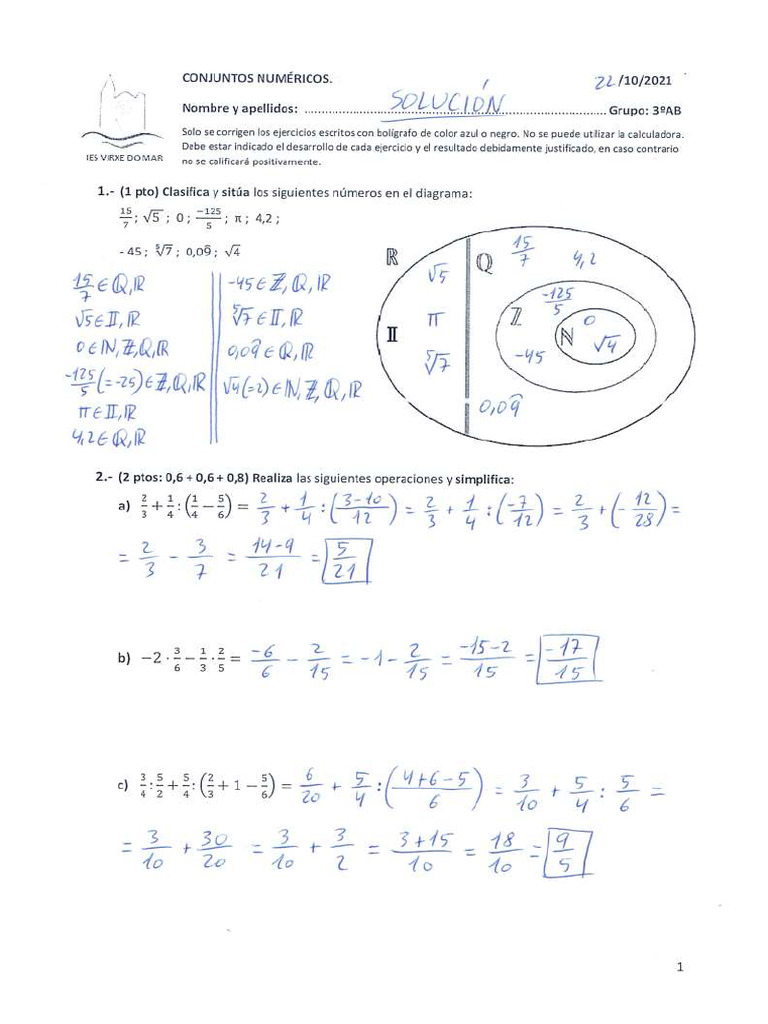 CONJUNTOS NUMÉRICOS. 22/10/2021
Nombre y apellidos: SOLUCIÓN Grupo: 3ºAB
Solo se corrigen los ejercicios escritos con bolígrafo de color azul o negro. No se puede utilizar la calculadora.
Debe estar indicado el desarrollo de cada ejercicio y el resultado debidamente justificado, en caso contrario
no se calificará positivamente.
IES VIRXE DO MAR
1.- (1 pto) Clasifica y sitúa los siguientes números en el diagrama:
15/7 ; √5 ; 0 ; -125/5 ; π ; 4,2 ;
- 45 ; ⁵√7 ; 0,09̂ ; √4
15/7 ∈ ℚ, ℝ
√5 ∈ 𝕀, ℝ
0 ∈ ℕ, ℤ, ℚ, ℝ
-125/5 (= -25) ∈ ℤ, ℚ, ℝ
π ∈ 𝕀, ℝ
4,2 ∈ ℚ, ℝ
-45 ∈ ℤ, ℚ, ℝ
⁵√7 ∈ 𝕀, ℝ
0,09̂ ∈ ℚ, ℝ
√4 (=2) ∈ ℕ, ℤ, ℚ, ℝ
ℝ
𝕀
√5
π
⁵√7
ℚ
15/7
4,2
-125/5
ℤ
-45
ℕ
0
√4
0,09̂
2.- (2 ptos: 0,6 + 0,6 + 0,8) Realiza las siguientes operaciones y simplifica:
a) 2/3 + 1/4 : (1/4 − 5/6) = 2/3 + 1/4 : ((3-10)/12) = 2/3 + 1/4 : (-7/12) = 2/3 + (-12/28) =
= 2/3 - 3/7 = (14-9)/21 = 5/21
b) −2 · 3/6 − 1/3 · 2/5 = -6/6 - 2/15 = -1 - 2/15 = (-15-2)/15 = -17/15
c) 3/4 : 5/2 + 5/4 : (2/3 + 1 − 5/6) = 6/20 + 5/4 : ((4+6-5)/6) = 3/10 + 5/4 : 5/6 =
= 3/10 + 30/20 = 3/10 + 3/2 = (3+15)/10 = 18/10 = 9/5
1